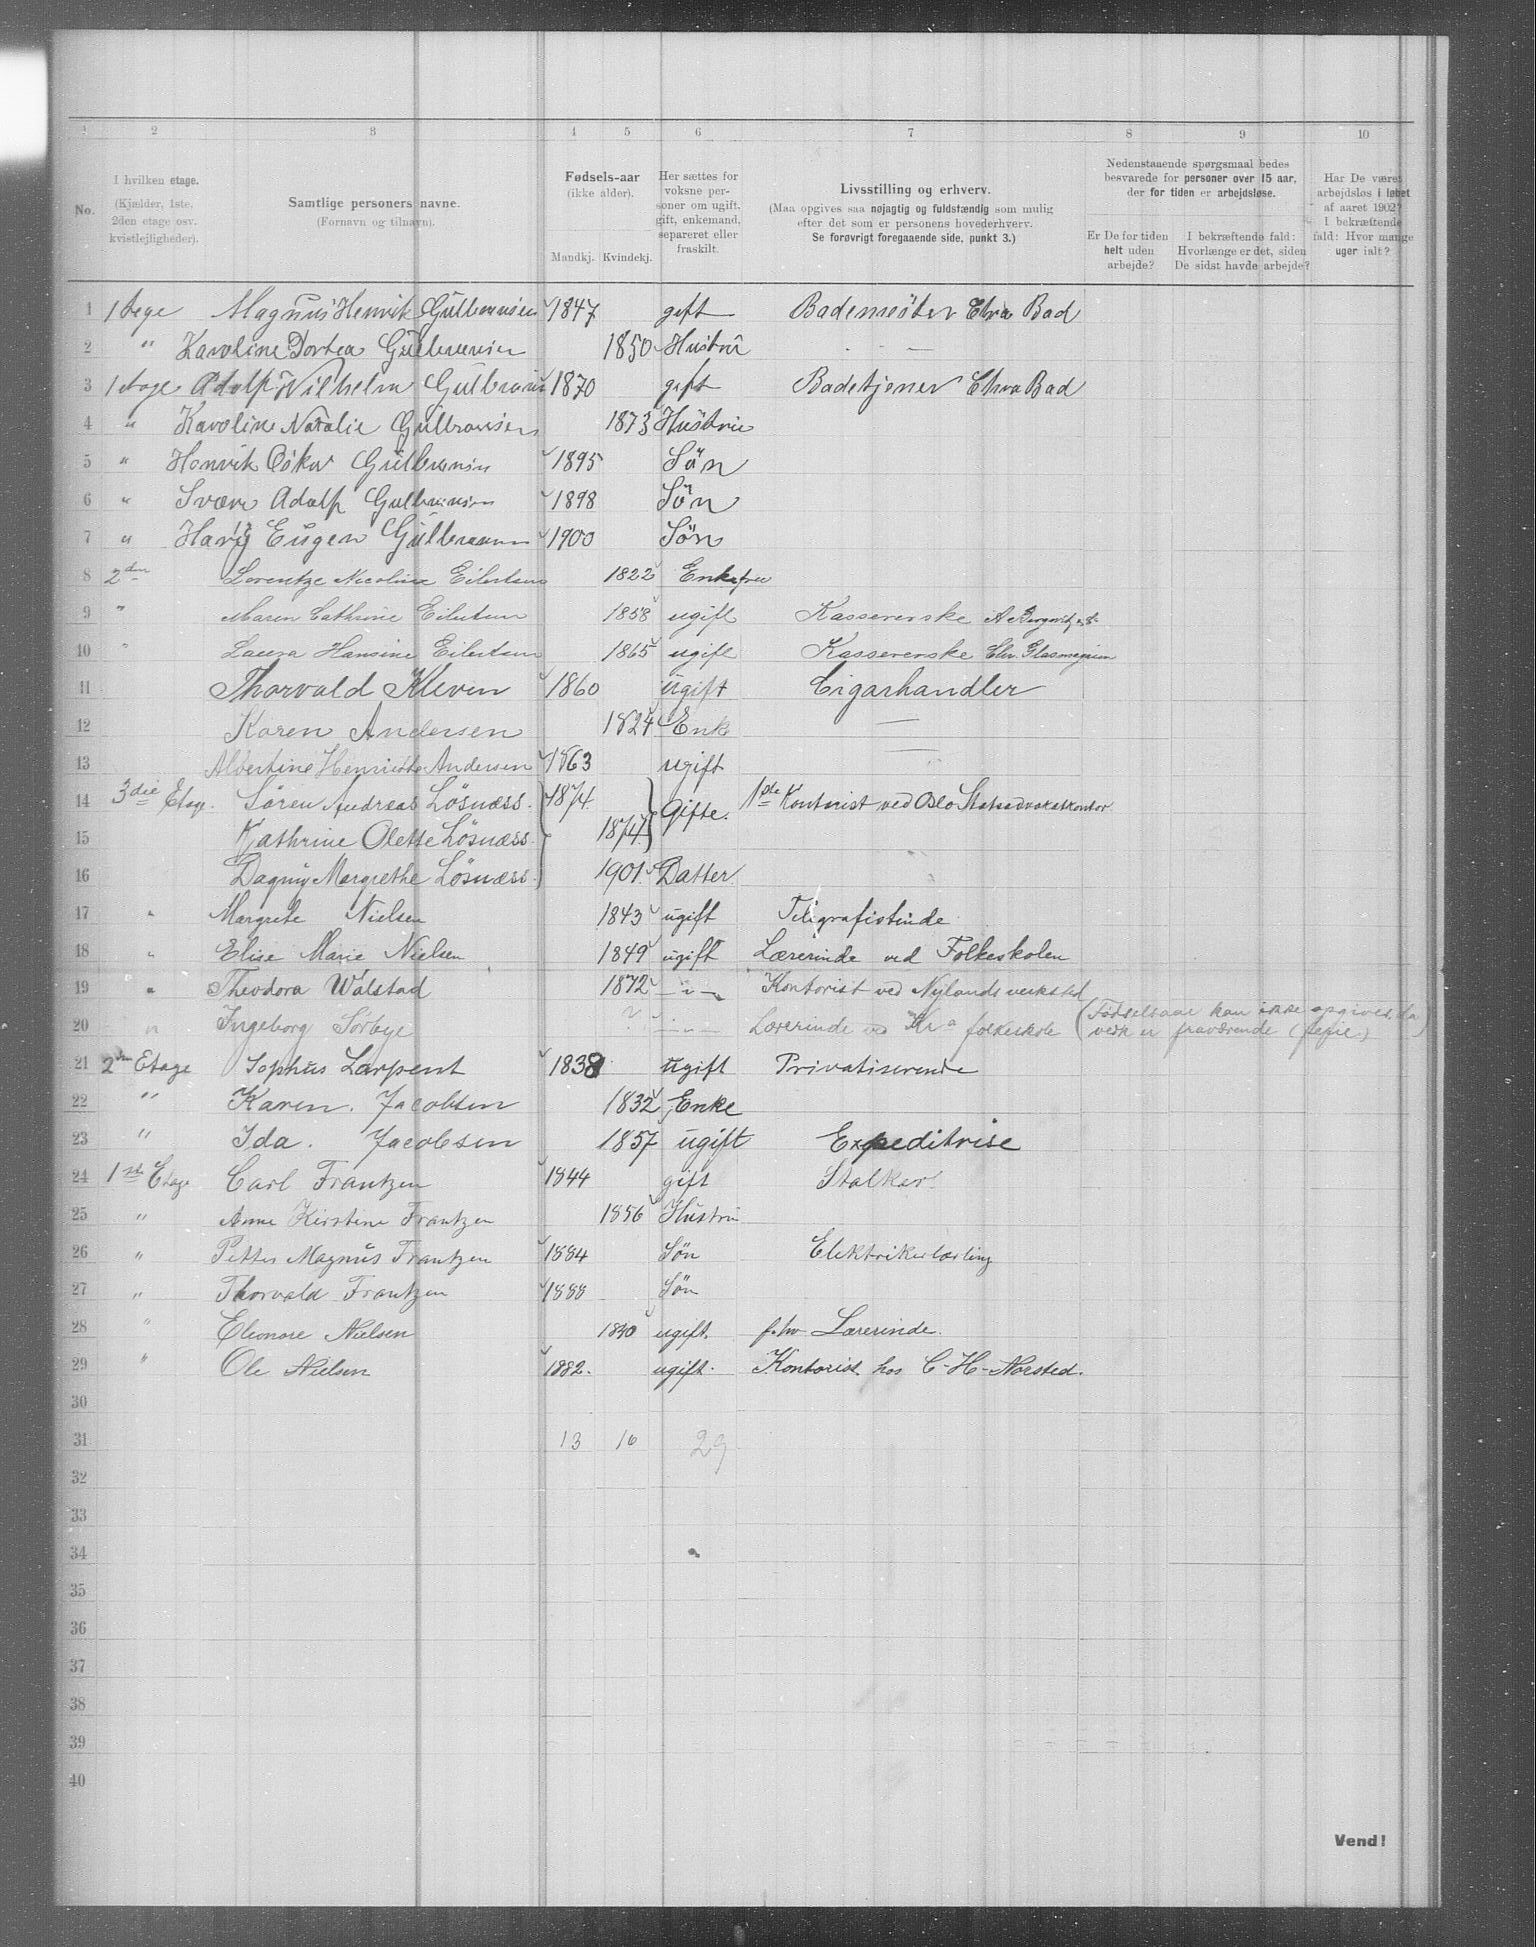 1 2 3 4 5 6 7 8 9 10
No.
I hvilken etage.
(Kjælder, 1ste,
2den etage osv.
kvistlejligheder).
Samtlige personers navne.
(Fornavn og tilnavn).
Fødsels-aar
(ikke alder).
Mandkj. Kvindekj.
Her sættes for
voksne per-
soner om ugift,
gift, enkemand,
separeret eller
fraskilt.
Livsstilling og erhverv.
(Maa opgives saa nøjagtig og fuldstændig som mulig
efter det som er personens hovederhverv.
Se forøvrigt foregaaende side, punkt 3.)
Nedenstaaende spørgsmaal bedes
besvarede for personer over 15 aar,
der for tiden er arbejdsløse.
Er De for tiden
helt uden
arbejde?
I bekræftende fald:
Hvorlænge er det, siden
De sidst havde arbejde?
Har De været
arbejdsløs i løbet
af aaret 1902?
I bekræftende
fald: Hvor mange
uger ialt?
1 1 Magnus Henrik Gulbransen 1847 gift Bademester Bad
2 " Karoline Dortea Gulbransen 1850 Hustru
3 1 Adolf Wilhelm Gulbransen 1870 gift Badetjener Bad
4 " Karoline Natalie Gulbransen 1873 Hustrue
5 " Henrik Gulbransen 1895 Søn
6 " Svære Adolf Gulbransen 1898 Søn
7 " Eugen Gulbransen 1900 Søn
8 2den Lorentze Nicoline Eilertsen 1822 Enkefru
9 " Maren Cathrine Eilertsen 1858 ugift Kassererske
10 " Laura Hansine Eilertsen 1865 ugift Kassererske Chr. Glasmagasin
11 Thorvald Kleven 1860 ugift Cigarhandler
12 Karen Andersen 1824 Enk —
13 Albertine Henriette Andersen 1863 ugift —
14 3die Etage. Søren Andreas Løsnæss. 1874. Gifte. Kontorist ved Oslo Statsadvokatkontor
15 Kathrine Olette Løsnæss. 1874
16 Dagny Margrethe Løsnæss. 1901. Datter.
17 " Margrete Nielsen 1843 ugift Telegrafistinde
18 " Elise Marie Nielsen 1849 ugift Lærerinde ved Folkeskolen
19 " Theodora Walstad 1872 — " — Kontorist ved Nylands verksted
20 " Ingeborg Sørbye ? — " — Lærerinde ved Kra folkeskole (Fødselsaar kan ikke opgives, da
vedk er fraværende (ferie)
21 2den Etage Sophus Larpent 1838 ugift Privatiserende
22 " Karen Jacobsen 1832 Enke
23 " Ida. Jacobsen 1857 ugift Expeditrise
24 1st Etage Carl Frantzen 1844 gift Stalkar.
25 " Anne Kirstine Frantzen 1856 Hustru
26 " Petter Magnus Frantzen 1884 Søn Elektrikerlærling
27 " Thorvald Frantzen 1888 Søn
28 " Eleonore Nielsen 1840 ugift. f.hv Lærerinde.
29 " Ole Nielsen 1882. ugift. Kontorist hos C-H-Norsted.
30
31 13 16 29
32
33
34
35
36
37
38
39
40
Vend!